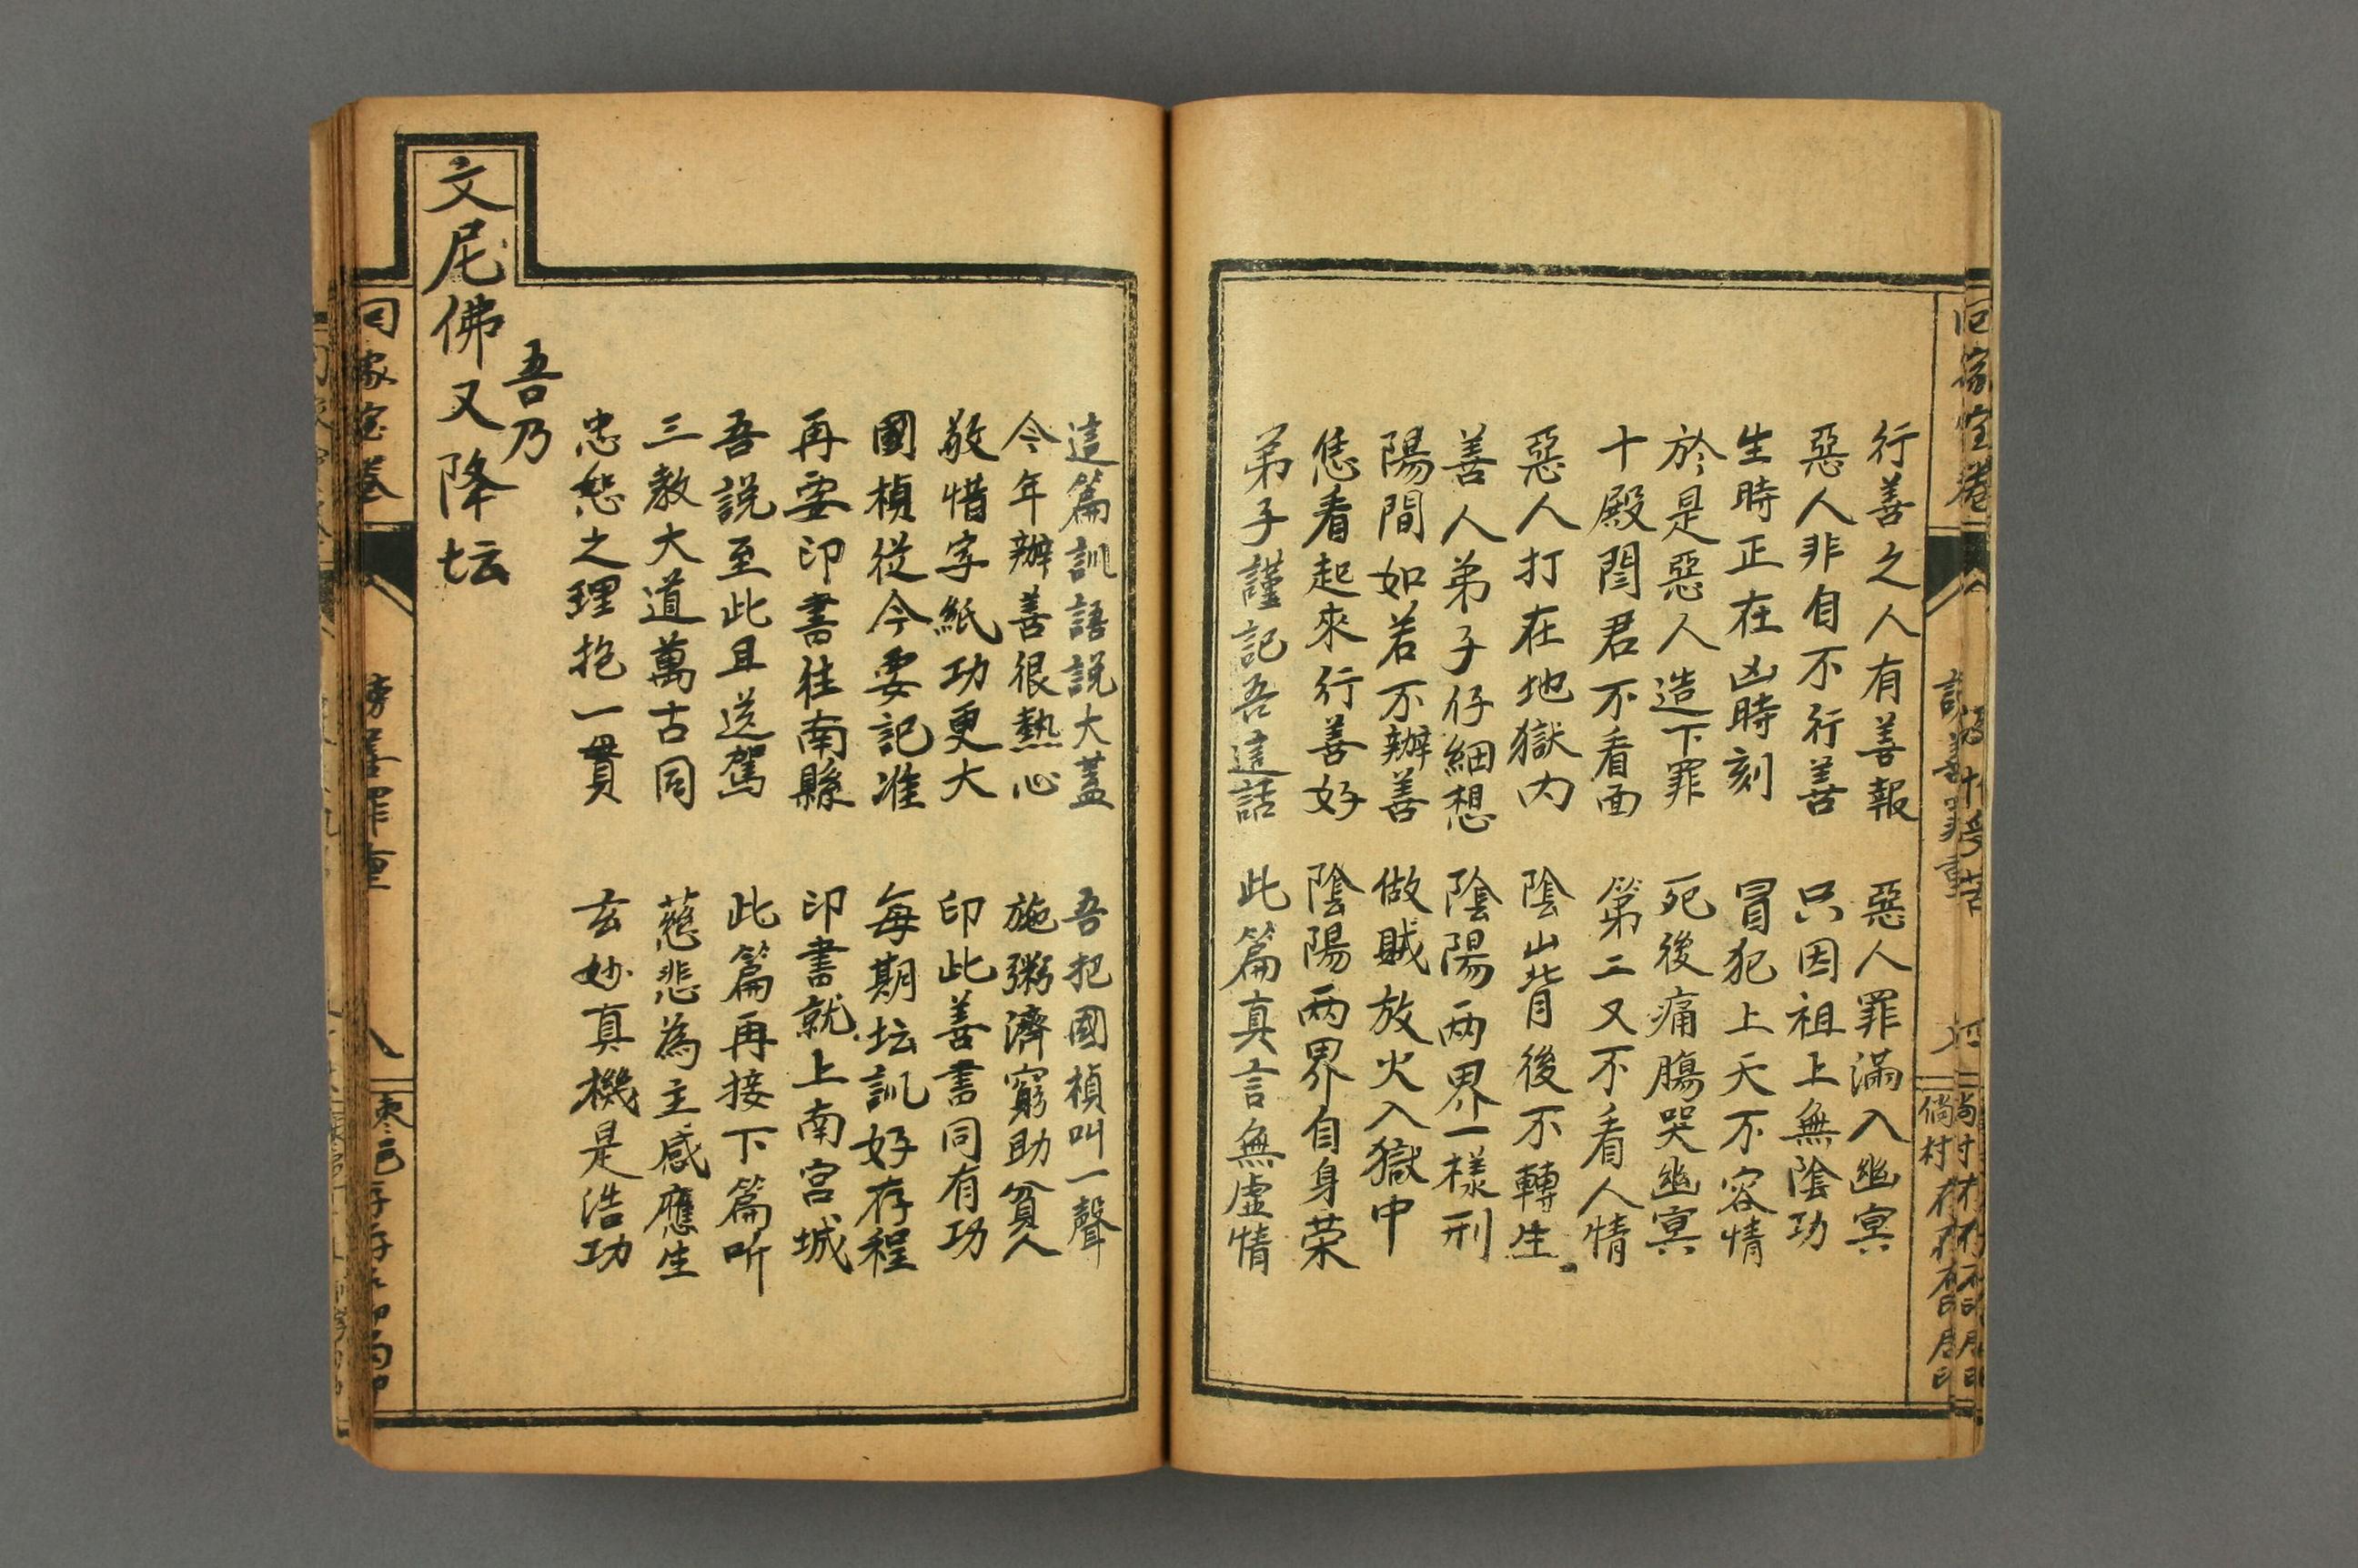 行善之人有善報　惡人罪滿入幽冥
惡人非自不行善　只因祖上無陰功
生時正在凶時刻　冒犯上天不容情
於是惡人造下罪　死後痛腸哭幽冥
十殿閆君不看面　第二又不看人情
惡人打在地獄內　陰山背後不轉生
善人弟子仔細想　陰陽两界一樣刑
陽間如若不辦善　做賊放火入獄中
恁看起來行善好　陰陽两界自身荣
弟子謹記吾這話　此篇真言無虛情
這篇訓語說大蓋　吾把國楨叫一聲
今年辦善很熱心　施粥濟窮助貧人
敬惜字紙功更大　印此善書同有功
國楨從今要記准　每期坛訓好存程
再要印書往南縣　印書就上南宮城
吾說至此且送駕　此篇再接下篇听
三教大道萬古同　慈悲為主感應生
忠恕之理抱一貫　玄妙真機是浩功
吾乃
文尼佛又降坛